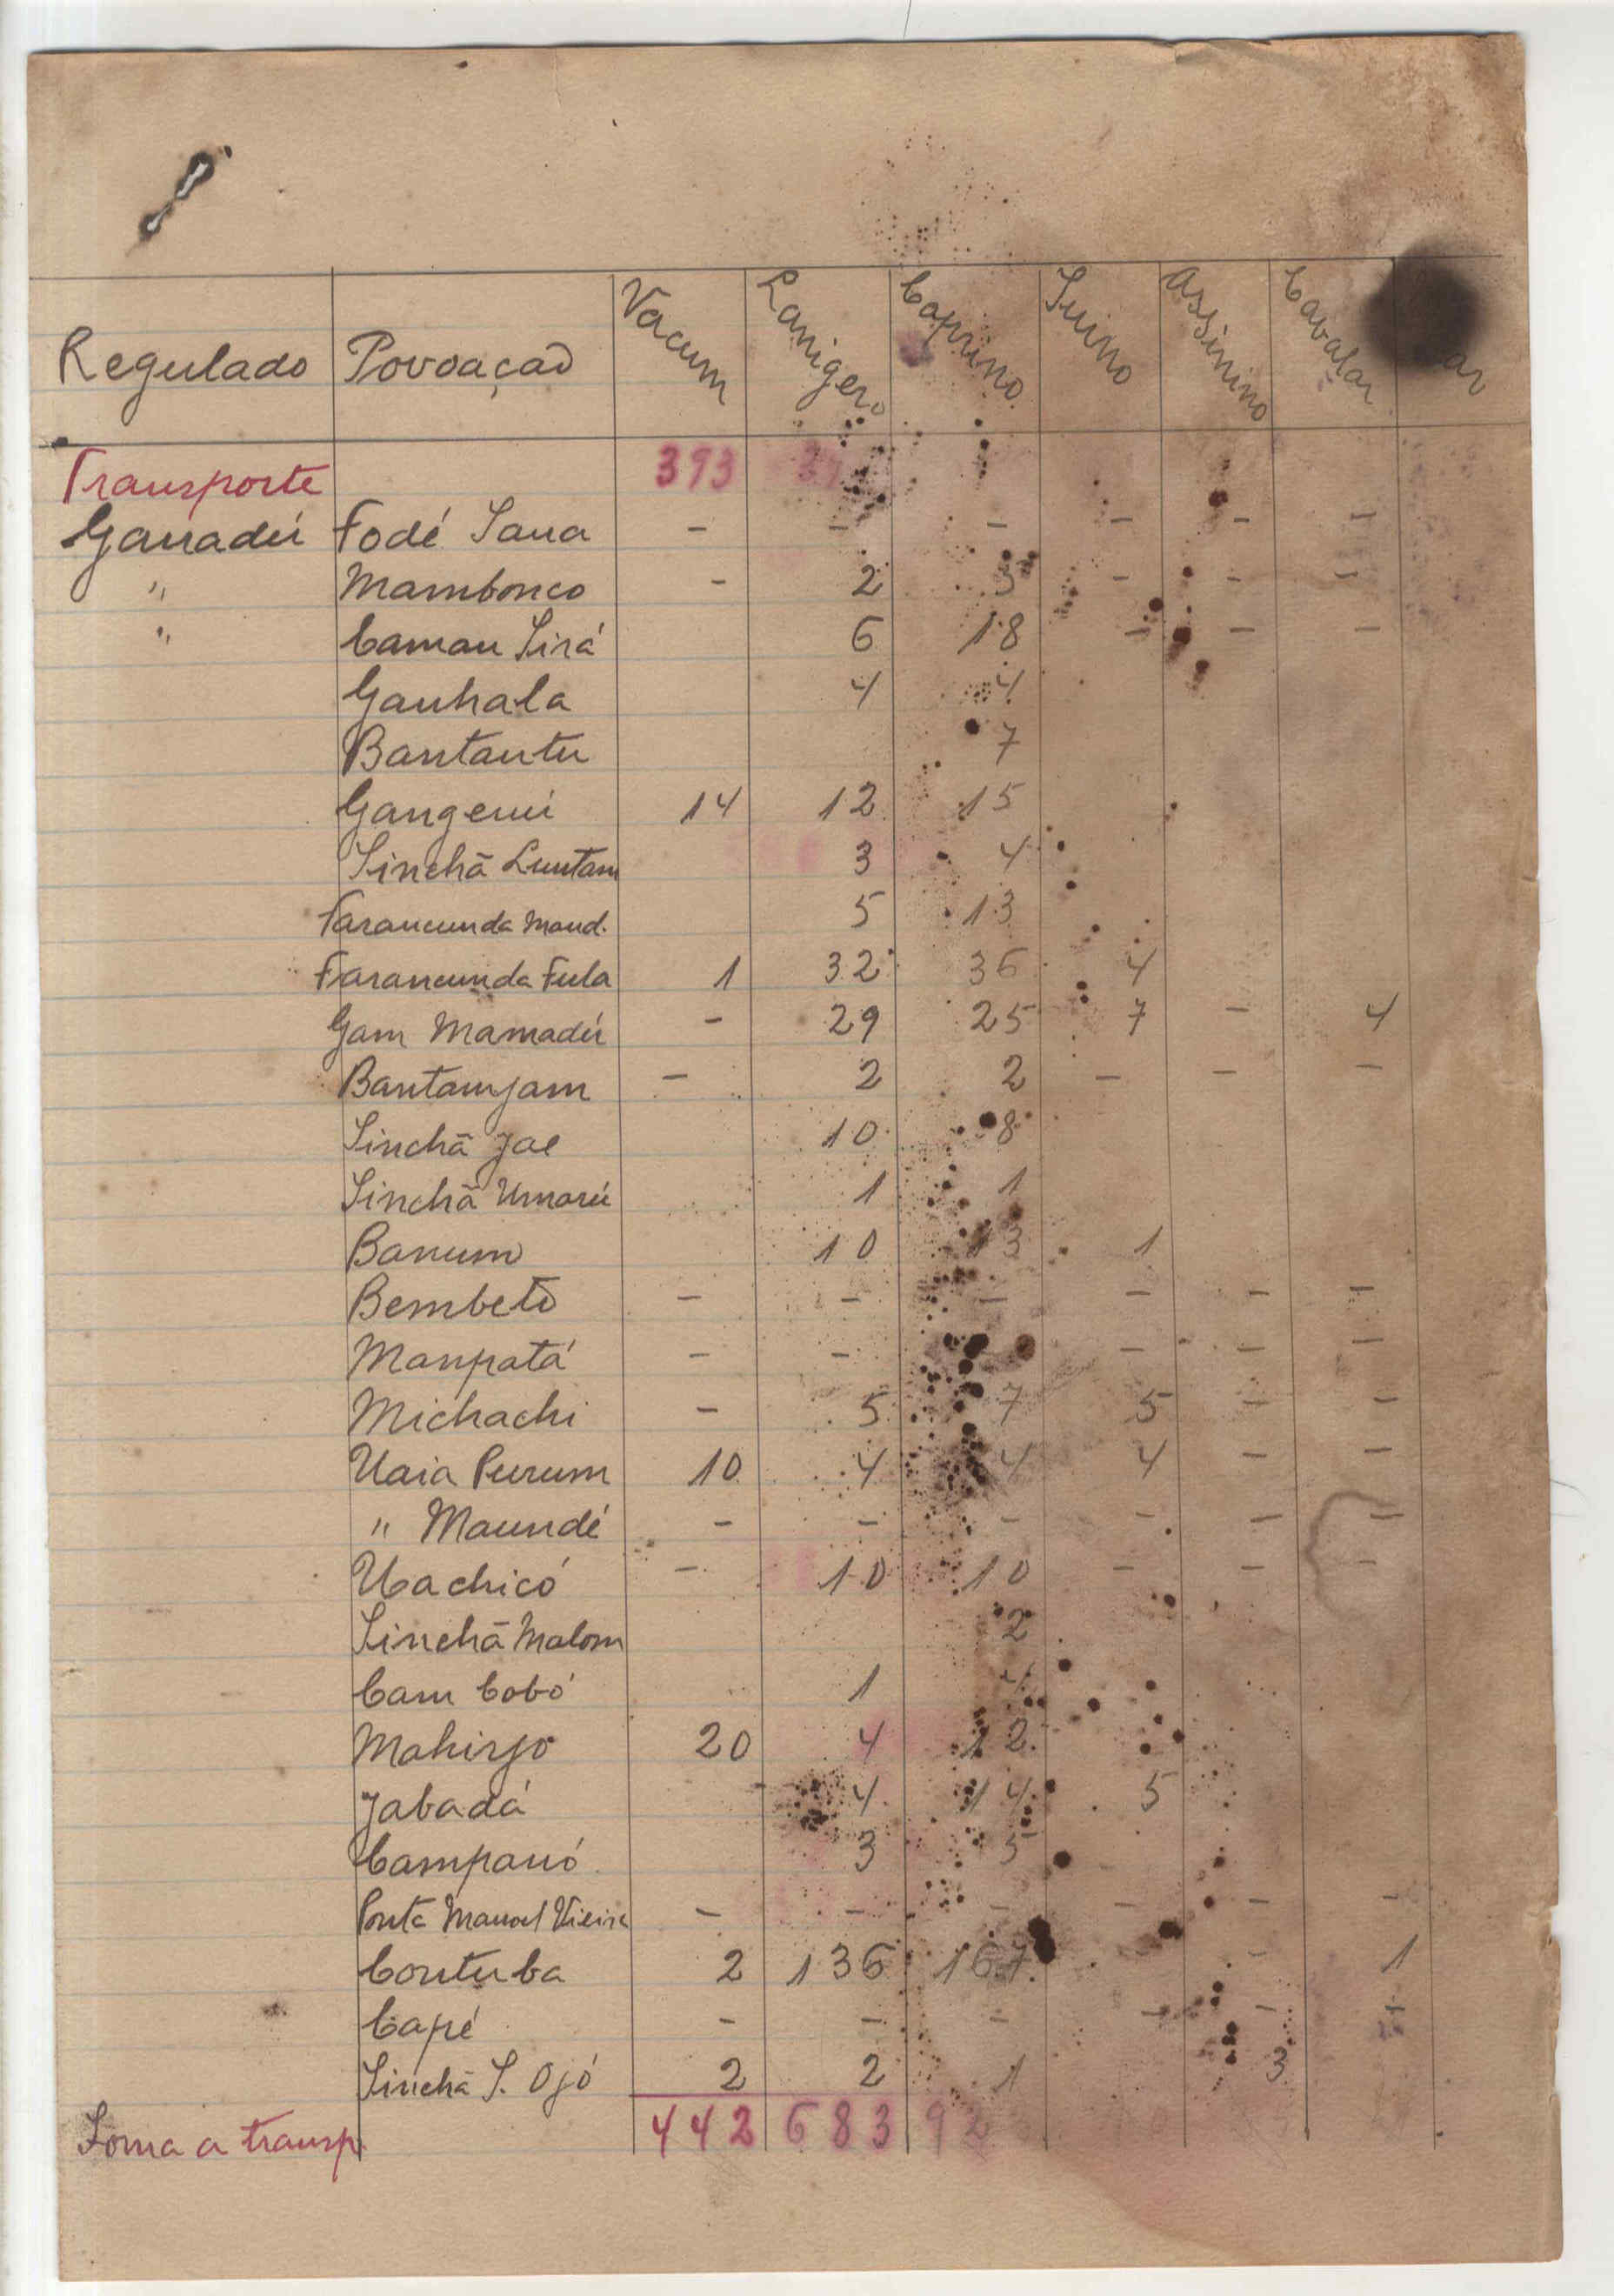 Regulado Povoação Vacum Lanigero Caprino Suino Assinino Cavalar
Transporte 393
Ganadú Fodé Sana - - - - - -
" Mambonco - 2 3 - - -
" Caman Sirá 6 18 - - -
Ganhala 4 4
Bantantu 7
Gangenú 14 12 15
Sinchã Luntam 3 4
Farancunda Mand. 5 13
Farancunda Fula 1 32 36 4
Gam Mamadú - 29 25 7 - 4
Bantamjam - 2 2 - - -
Sinchã Jae 10 8
Sinchã Umarú 1 1
Banum 10 13 1
Bembetò - - - - - -
Manpatá - - - - -
Michachi - 5 7 5 - -
Uaia Purum 10 4 4 4 - -
" Maundé - - - - - -
Uachicó - 10 10 - - -
Sinchã Malom 2
Cam Cobó 1 4
Mahirjo 20 4 12
Jabadá 4 14 5
Campanó 3 5
Ponta Manoel Vieira - - - - - -
Contuba 2 136 167 - - 1
Capé - - - - - -
Sinchã S. Ojó 2 2 1 3
Soma a transp. 442 683